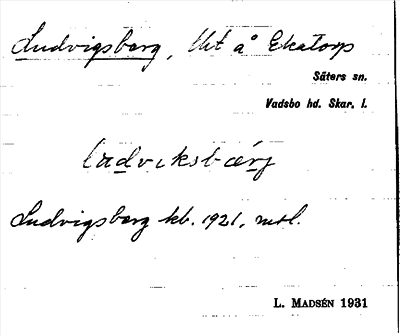 Ludvigsberg, Ut å Ekatorp
Säters sn.
Vadsbo hd. Skar. l.
ludviksbærj
Ludvigsberg kb. 1921, mtl.
L. MADSÉN 1931